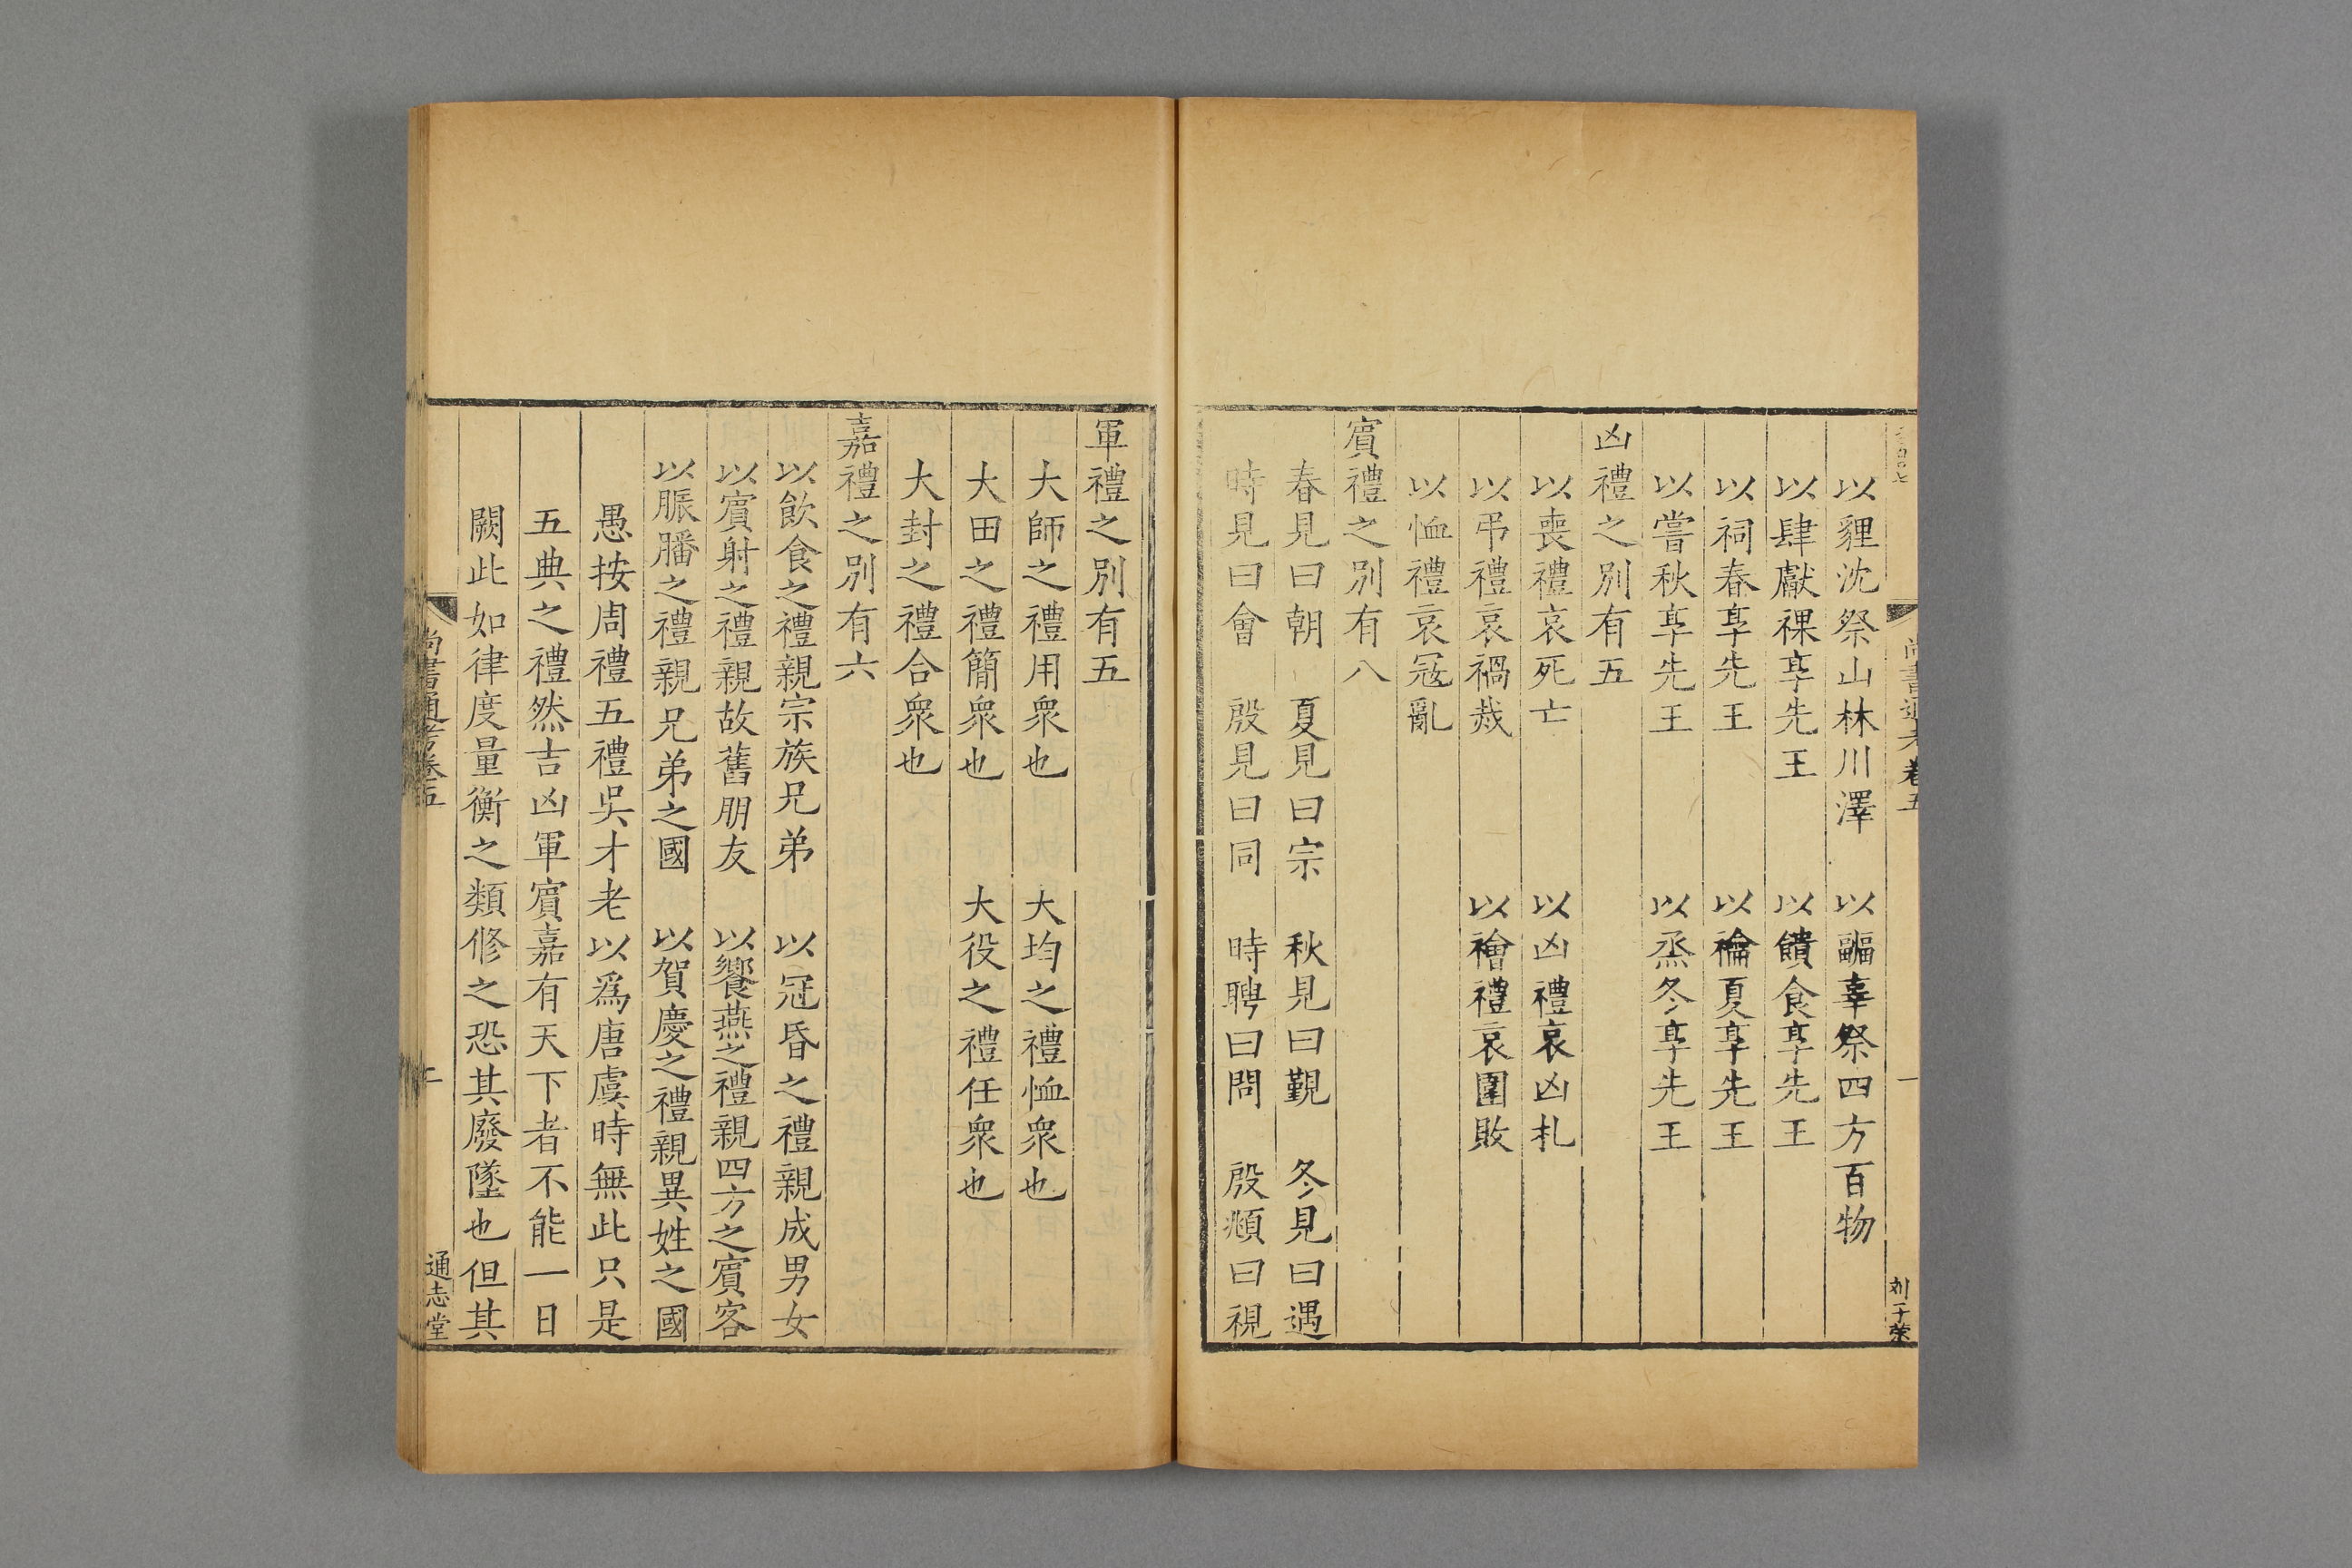 尚書通考卷五
一
刘子荣
以貍沈祭山林川澤　以疈辜祭四方百物
以肆獻祼享先王　以饋食享先王
以祠春享先王　以禴夏享先王
以嘗秋享先王　以烝冬享先王
凶禮之別有五
以喪禮哀死亡　以凶禮哀凶札
以弔禮哀禍烖　以禬禮哀圍敗
以恤禮哀寇亂
賓禮之別有八
春見曰朝　夏見曰宗　秋見曰覲　冬見曰遇
時見曰會　殷見曰同　時聘曰問　殷頫曰視
軍禮之別有五
大師之禮用衆也　大均之禮恤衆也
大田之禮簡衆也　大役之禮任衆也
大封之禮合衆也
嘉禮之別有六
以飲食之禮親宗族兄弟　以冠昏之禮親成男女
以賓射之禮親故舊朋友　以饗燕之禮親四方之賓客
以脤膰之禮親兄弟之國　以賀慶之禮親異姓之國
愚按周禮五禮吳才老以爲唐虞時無此只是
五典之禮然吉凶軍賓嘉有天下者不能一日
闕此如律度量衡之類修之恐其廢墜也但其
尚書通考卷五
通志堂